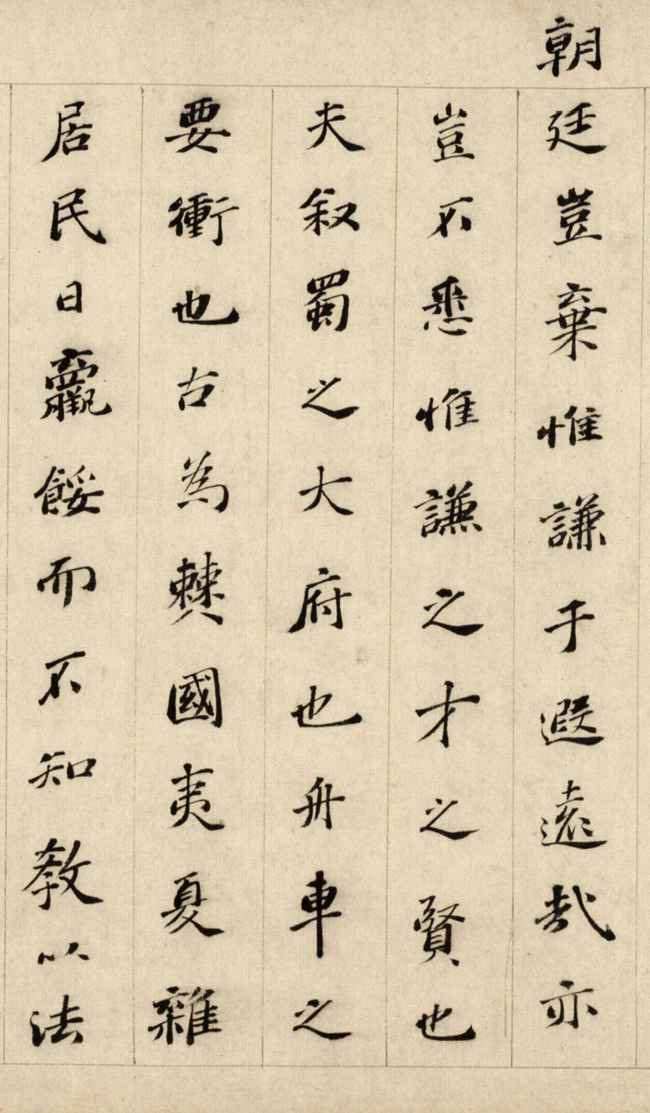 朝廷豈棄惟謙于遐遠哉亦
豈不悉惟謙之才之賢也
夫叙蜀之大府也舟車之
要衝也古為僰國夷夏雜
居民日羸餒而不知教以法